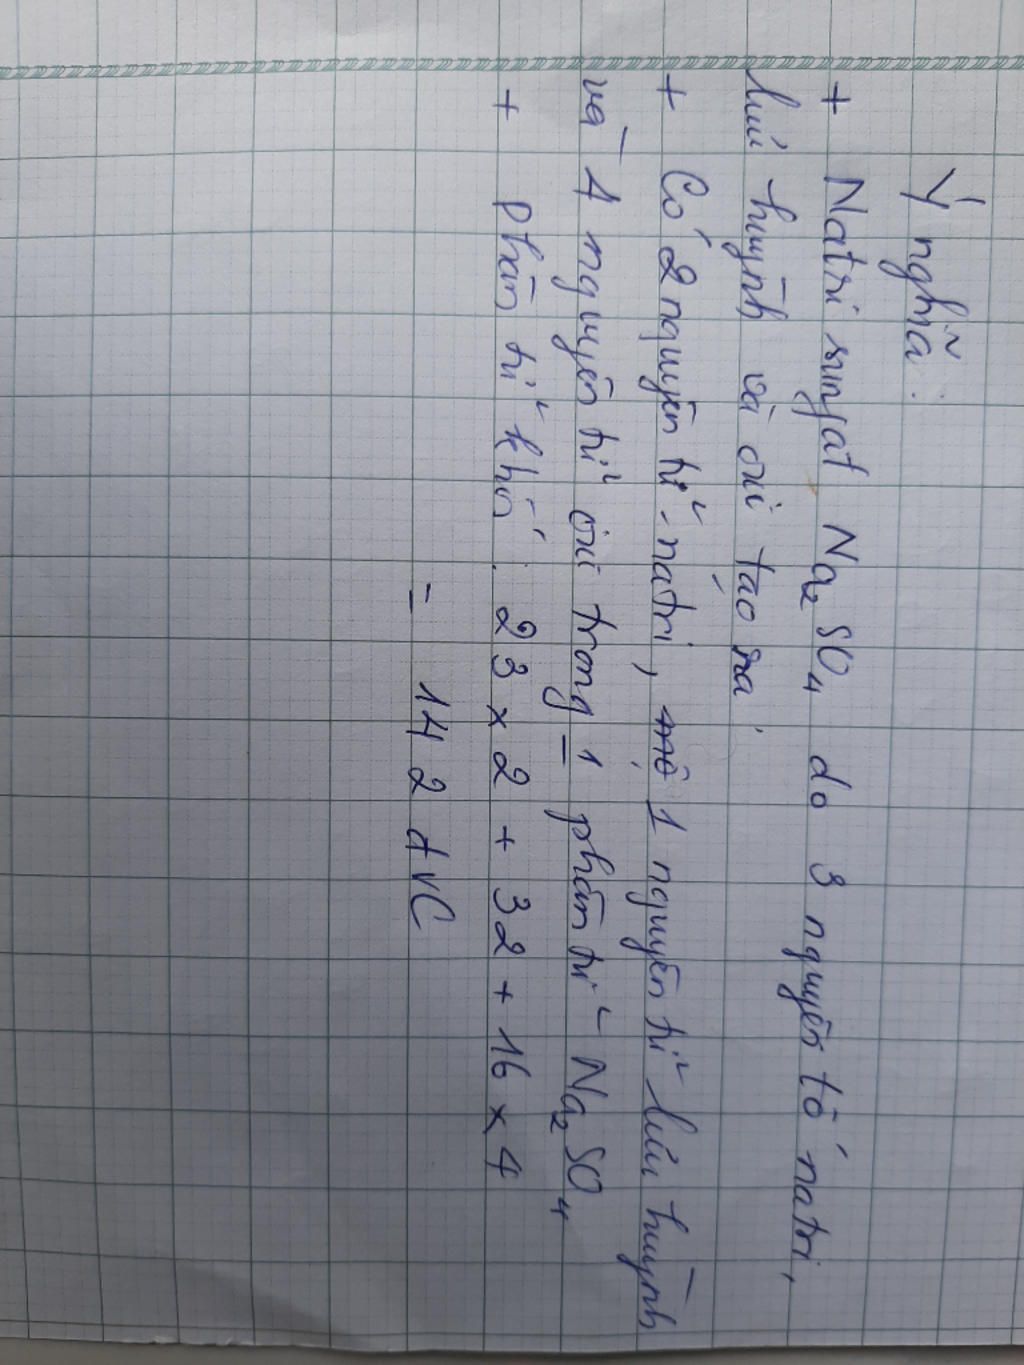 Ý nghĩa:
+ Natri sunfat Na₂SO₄ do 3 nguyên tố natri,
lưu huỳnh và oxi tạo ra.
+ Có 2 nguyên tử natri, mộ 1 nguyên tử lưu huỳnh
và 4 nguyên tử oxi trong 1 phân tử Na₂SO₄
+ phân tử khối: 23 x 2 + 32 + 16 x 4
= 142 đvC